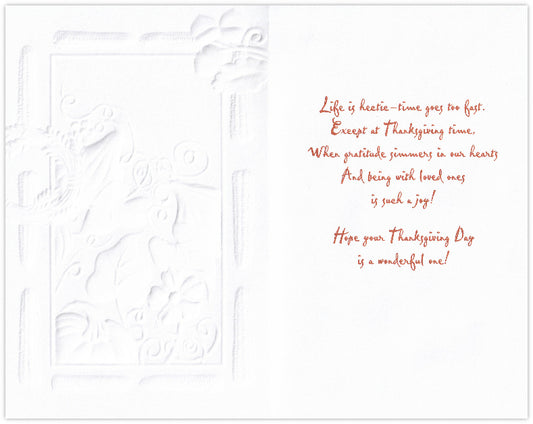 Life is hectic–time goes too fast.
Except at Thanksgiving time,
When gratitude simmers in our hearts
And being with loved ones
is such a joy!
Hope your Thanksgiving Day
is a wonderful one!